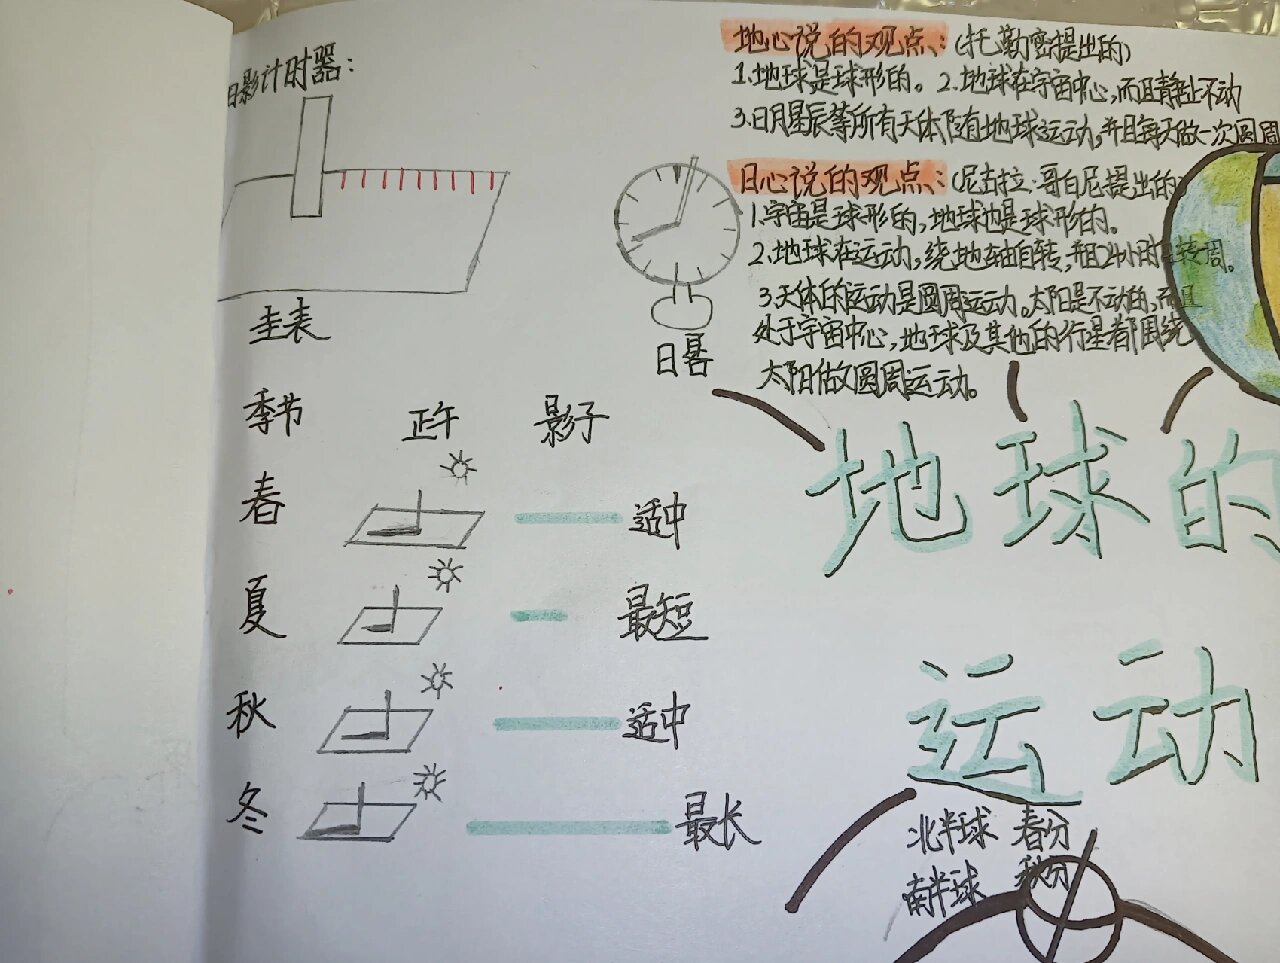 日影计时器：
圭表
日晷
季节 正午 影子
春 适中
夏 最短
秋 适中
冬 最长
地心说的观点：（托勒密提出的）
1.地球是球形的。2.地球在宇宙中心，而且静止不动
3.日月星辰等所有天体随着地球运动，并且每天做一次圆周
日心说的观点：（尼古拉·哥白尼提出的）
1.宇宙是球形的，地球也是球形的。
2.地球在运动，绕地轴自转，并且24小时自转一周。
3.天体的运动是圆周运动。太阳是不动的，而且
处于宇宙中心，地球及其他的行星都围绕
太阳做圆周运动。
地球的
运动
北半球 春分
南半球 秋分